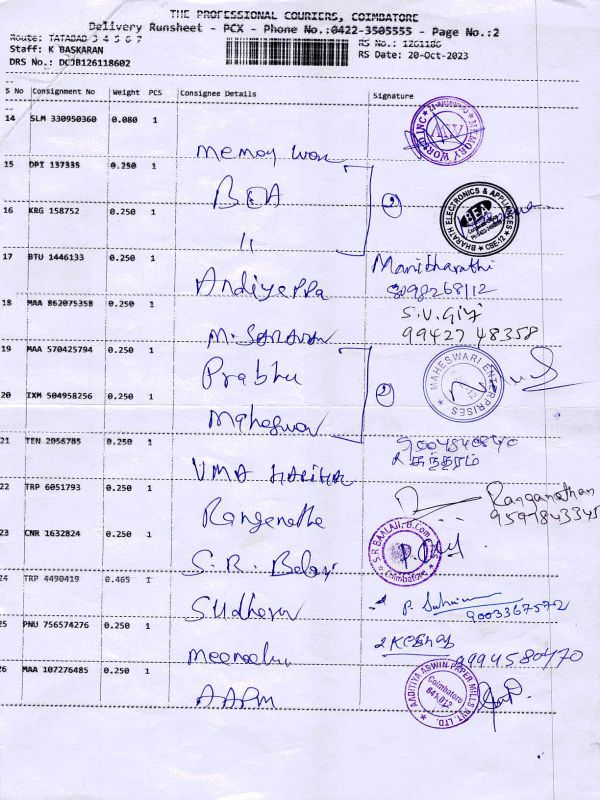 THE PROFESSIONAL COURIERS, COIMBATORE
Delivery Runsheet - PCX - Phone No.:0422-3505555 - Page No.:2
Route: TATABAD 3 4 5 6 7
RS No.: 1261186
Staff: K BASKARAN
RS Date: 20-Oct-2023
DRS No.: DCJB126118602
S No Consignment No Weight PCS Consignee Details Signature
14 SLM 330950360 0.080 1
MEMORY WORLD INC
15 DPI 137335 0.250 1
BEA
2
BHARATH ELECTRONICS & APPLIANCES
BEA
CBE-12
16 KRG 158752 0.250 1
11
17 BTU 1446133 0.250 1
Manibharathi
Andiyappa
8098268112
18 MAA 862075358 0.250 1
S.V. Giri
M. Saravan
99427 48358
19 MAA 570425794 0.250 1
Prabhu
2
MAHESWARI ENTERPRISES
20 IXM 504958256 0.250 1
Maheswar
21 TEN 2056785 0.250 1
சுந்தரம்
VMA
22 TRP 6051793 0.250 1
Ranganathan
Ranganatha
23 CNR 1632824 0.250 1
S.R BAALAJI, B.Com
Coimbatore
S.R. Balaji
24 TRP 4490419 0.465 1
Sudharan
9003367572
25 PNU 756574276 0.250 1
9994580470
Meenakshi
26 MAA 107276485 0.250 1
AADITIYA ASWIN PAPER MILLS PVT. LTD.
Coimbatore
641 012
AAPM